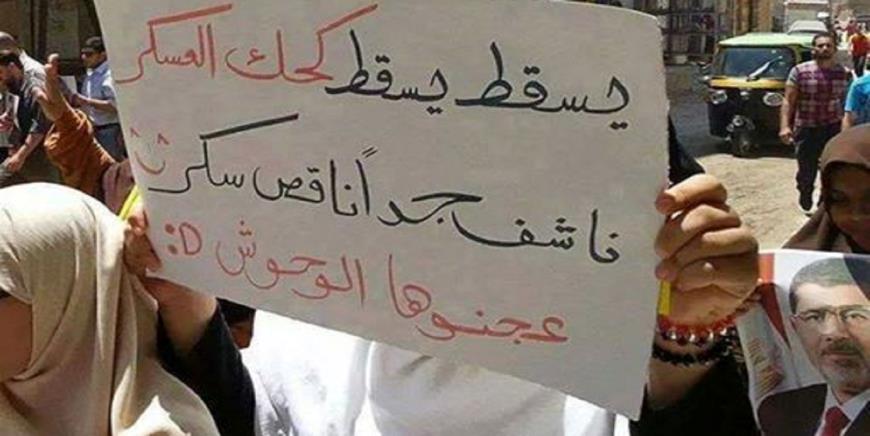 يسقط يسقط كحك العسكر
ناشف جداً ناقص سكر ^^
عجنوها الوحوش :D